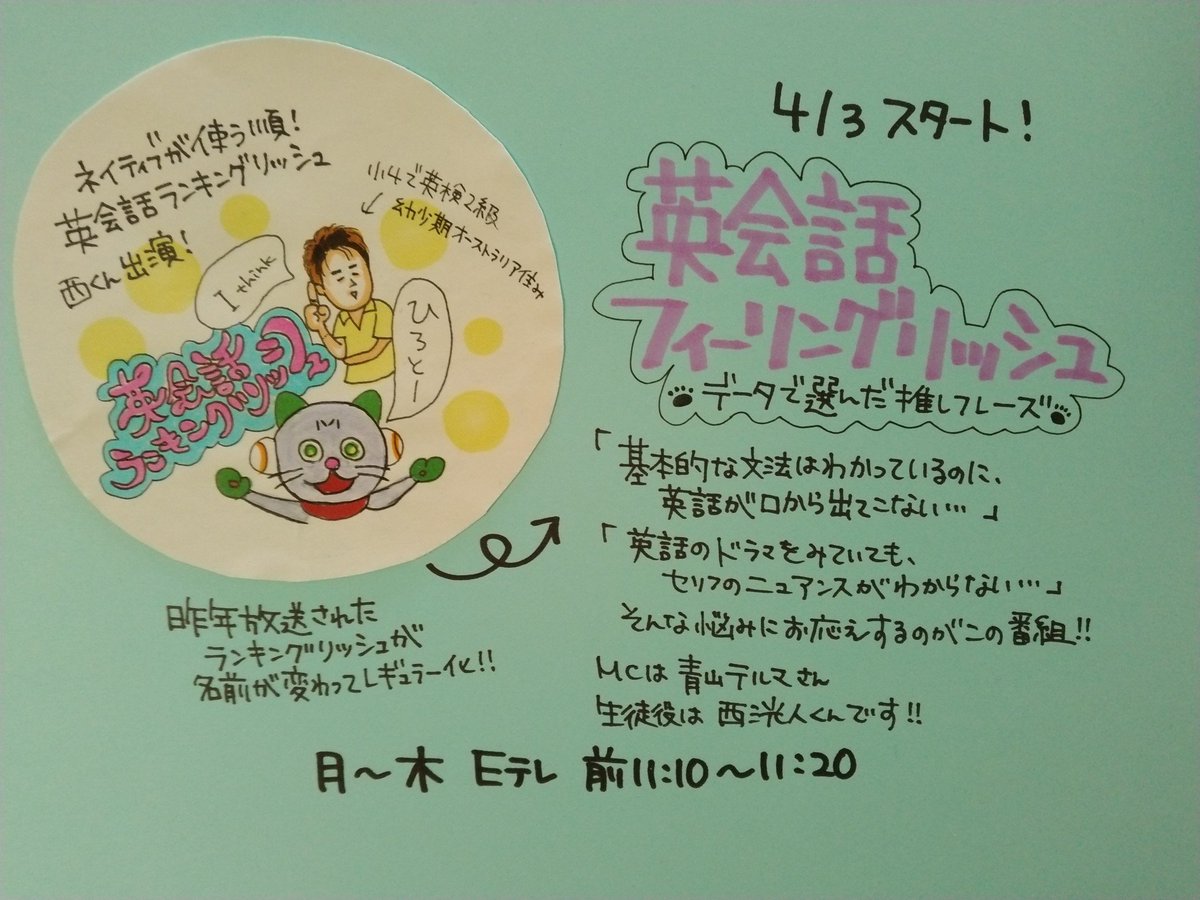 ネイティブが使う順!
英会話ランキングリッシュ
西くん出演!
小4で英検2級
幼少期オーストラリア住み
I think
ひろとー
英会話
ランキングリッシュ
昨年放送された
ランキングリッシュが
名前が変わってレギュラー化!!
4/3 スタート!
英会話
フィーリングリッシュ
データで選んだ推しフレーズ
「基本的な文法はわかっているのに、
英語が口から出てこない…」
「英語のドラマをみていても、
セリフのニュアンスがわからない…」
そんな悩みにお応えするのがこの番組!!
MCは青山テルマさん
生徒役は西洸人くんです!!
月〜木 Eテレ 前11:10〜11:20